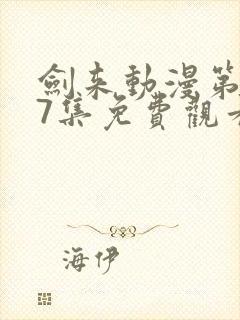 劍来動漫第
7集免費觀看
海伊